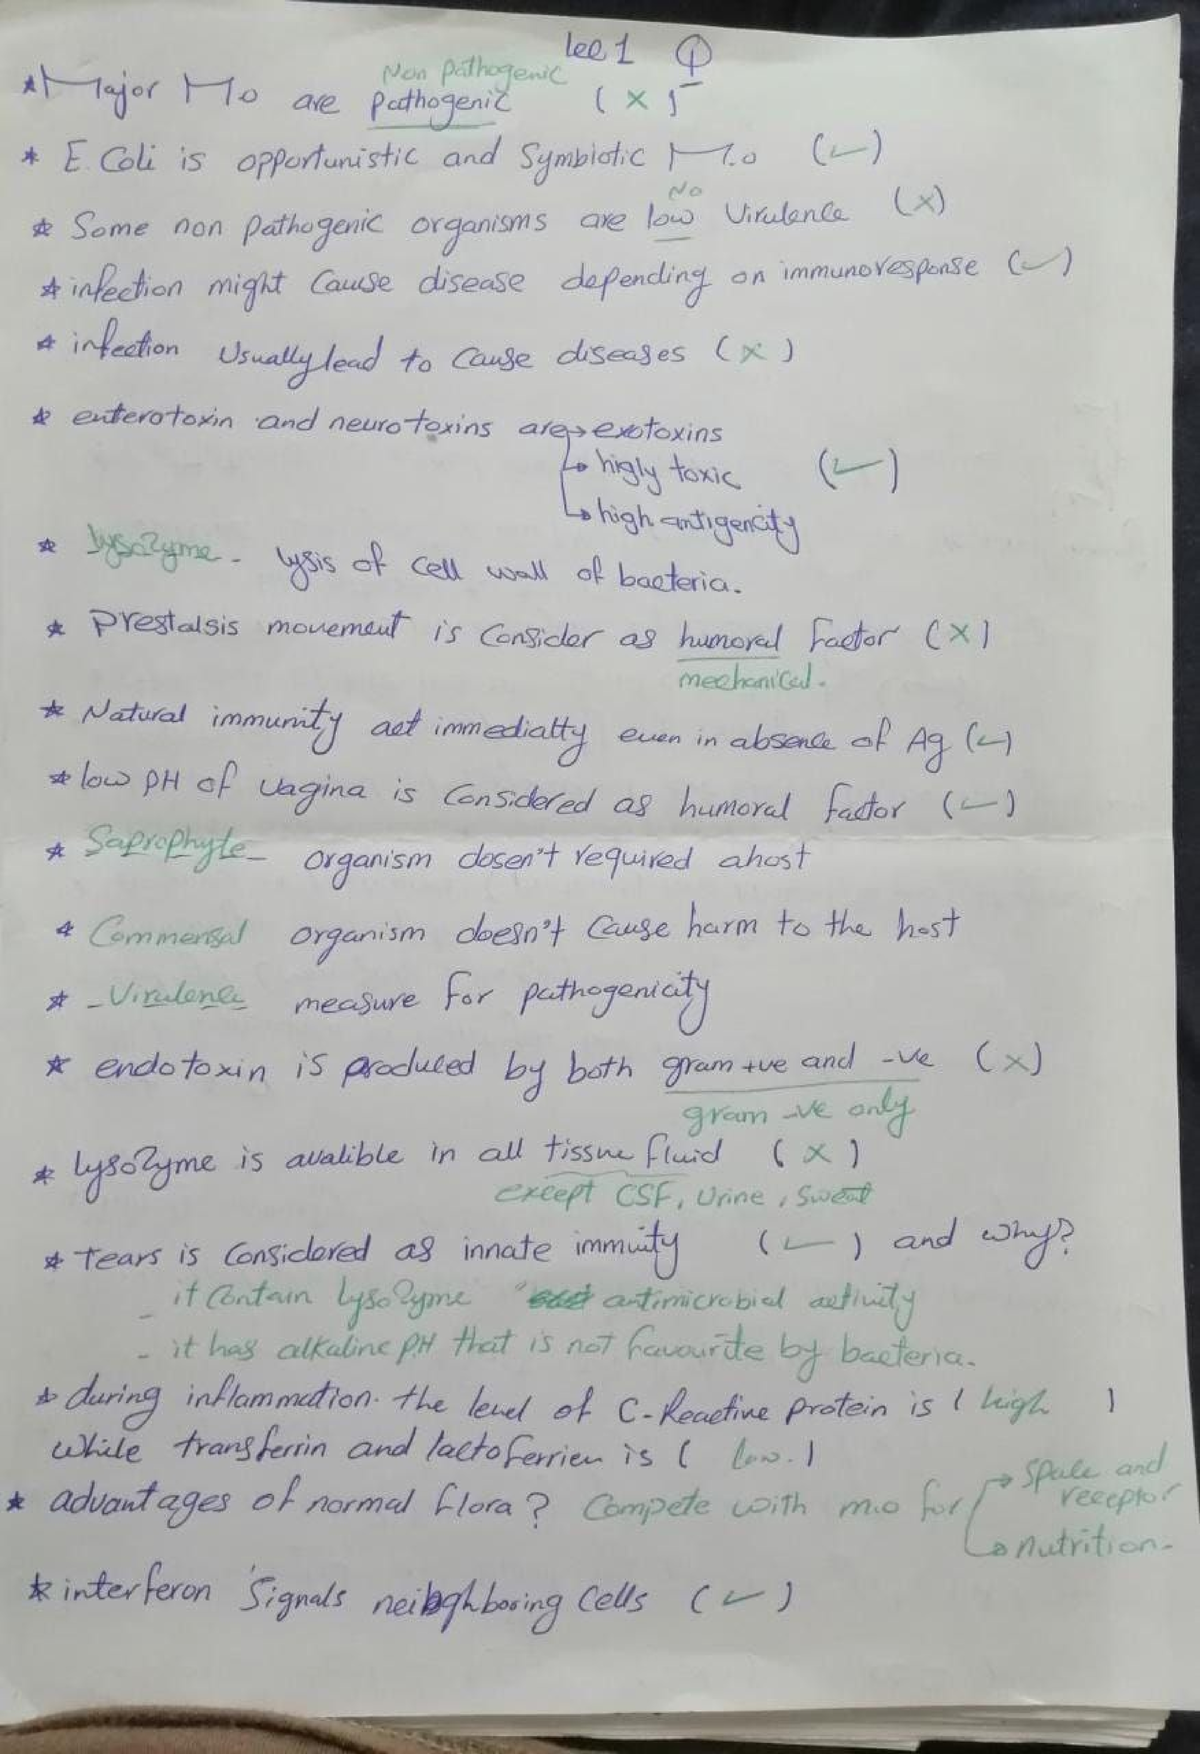 Lec 1 Q
Non pathogenic
* Major M.o are pathogenic (×)
* E.Coli is opportunistic and Symbiotic M.o (✓)
No
* Some non pathogenic organisms are low Virulence (×)
* infection might Cause disease depending on immunoresponse (✓)
* infection Usually lead to Cause diseases (×)
* enterotoxin and neurotoxins are → exotoxins
↳ higly toxic (✓)
↳ high antigencity
* Lysozyme - lysis of Cell wall of bacteria.
* Prestalsis movement is Consider as humoral factor (×)
mechanical.
* Natural immunity act immediatly even in absence of Ag (✓)
* low PH of vagina is Considered as humoral factor (✓)
* Saprophyte - organism dosen't required a host
* Commensal organism doesn't Cause harm to the host
* - Virulence measure for pathogenicity
* endotoxin is produced by both gram +ve and -ve (×)
gram -ve only
* lysozyme is avalible in all tissue fluid (×)
except CSF, Urine, Sweat
* Tears is Considered as innate immuity (✓) and why?
- it Contain lysozyme antimicrobial activity
- it has alkaline PH that is not favourite by bacteria.
* during inflammation. the level of C-Reactive protein is ( high )
While transferrin and lactoferrien is ( low. )
* advantages of normal flora? Compete with m.o for → Space and
receptor
↳ nutrition.
* interferon Signals neibghboring Cells (✓)